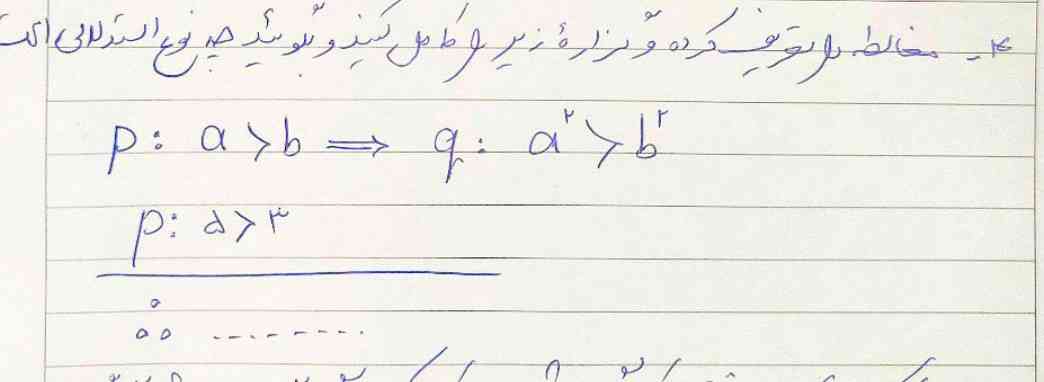 ۴- مغالطه را تعریف کرده و گزارهٔ زیر را کامل کنید و بگویید چه نوع استدلالی است
p: a > b ⟹ q: a^۲ > b^۲
p: ۵ > ۳
∴ ---------